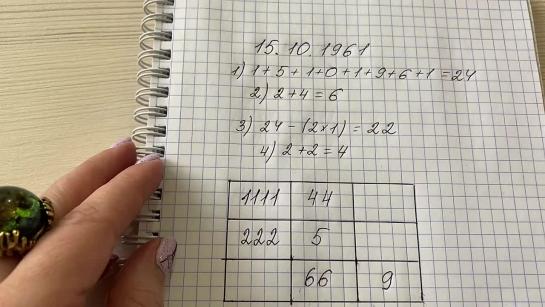 15.10.1961
1) 1+5+1+0+1+9+6+1=24
2) 2+4=6
3) 24-(2×1)=22
4) 2+2=4
1111 44
222 5
66 9